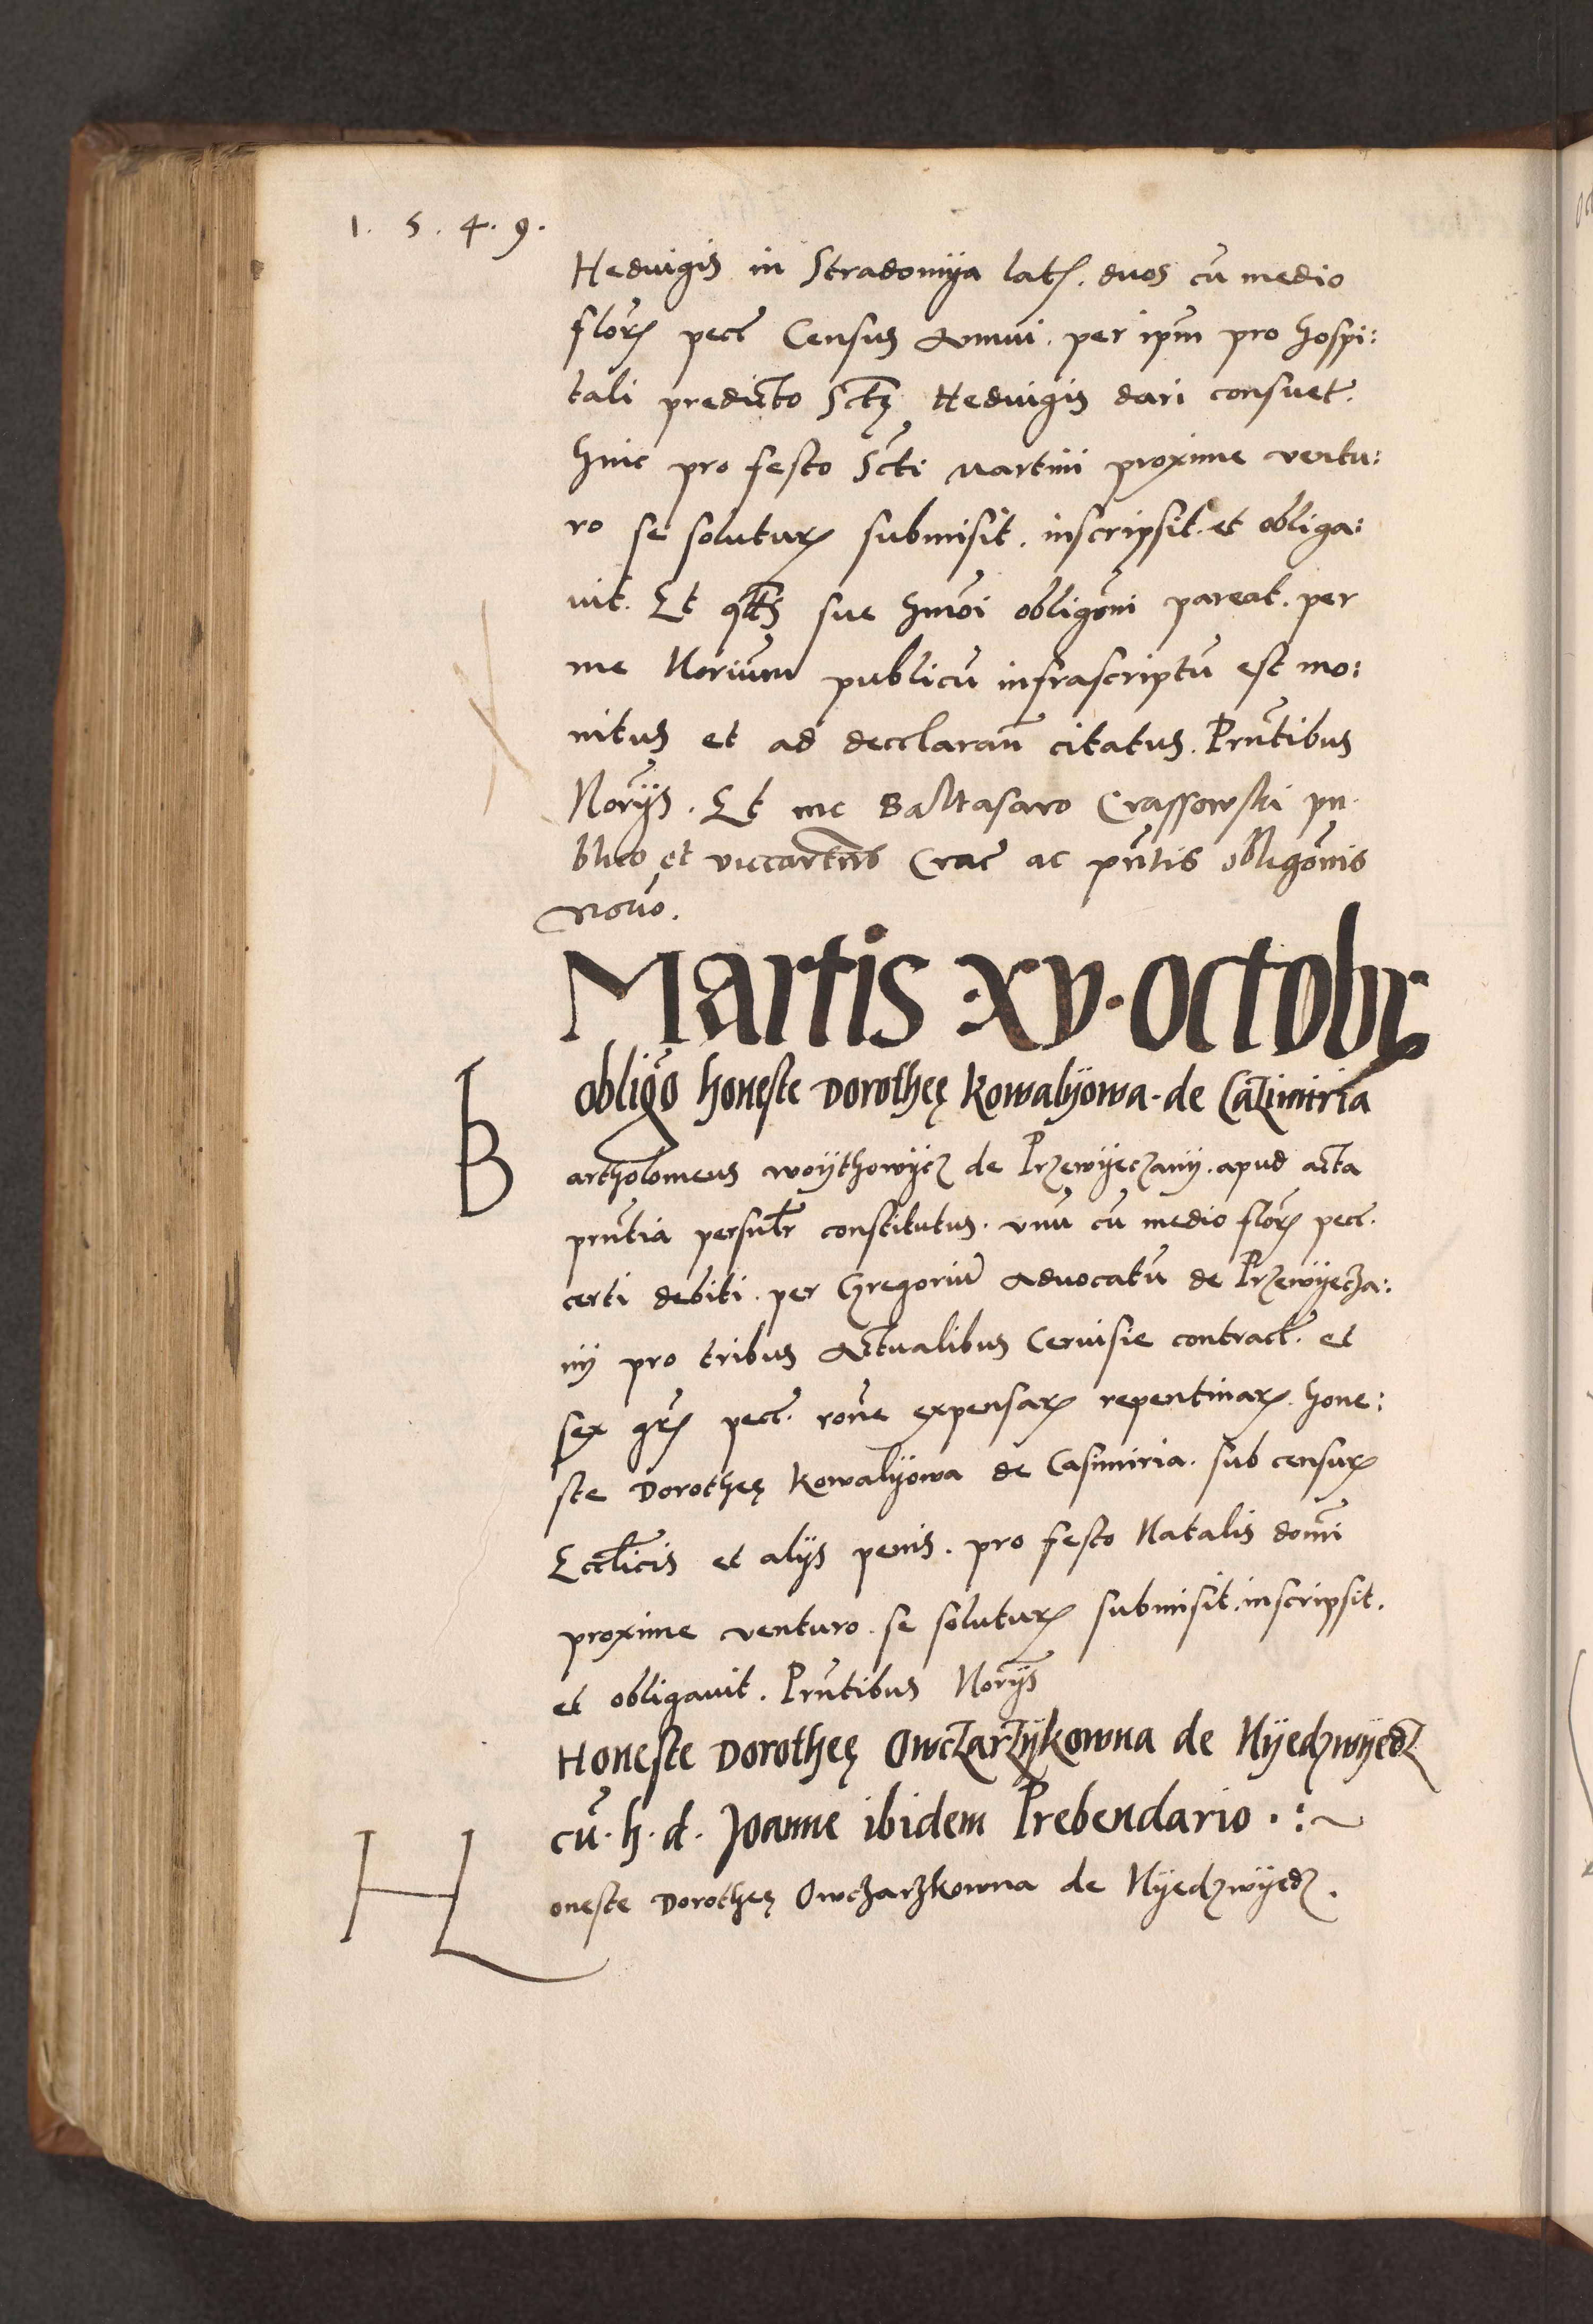 1. 5. 4. 9.
Hedvigis in Stradomya lat. duos cu medio
flor pecc Census Annui. per ipm pro hospi:
tali predicto Sctę Hedvigis dari consuet.
hinc pro festo Scti Martini proxime ventu:
ro se solutur submisit. inscripsit. et obliga:
vit. Et sue hmoi obligoni pareat. per
me Norium publicu infrascriptu est mo:
nitus et ad decclaran citatus. Prntibus
Norijs. Et me Baltasaro Crassowski pu
blico et Crac ac pntis obligonis
Martis .xv. octobr
obligo honeste Dorotheę Kowalyowa. de Cazimiria
Bartholomeus woythowycz de Przewyeczany. apud acta
prntia persnlr constitutus. unu cu medio flor pecc.
certi debiti. per Gregoriu Advocatu de Przewyecza:
ny pro tribus Actualibus Cervisie contract. et
sex gr pecc. rone expensar repentinar. hone:
ste Dorotheę Kowalyowa de Casimiria. sub censur
Ecclicis et alijs penis. pro festo Natalis domi
proxime venturo. se solutur submisit. inscripsit.
et obligavit. Prntibus Norijs
Honeste Dorotheę Owczarzykowna de Nyedzwyedz
cu. h. d. Joanne ibidem Prebendario . : ~
Honeste Dorotheę Owczarzkowna de Nyedzwyedz.